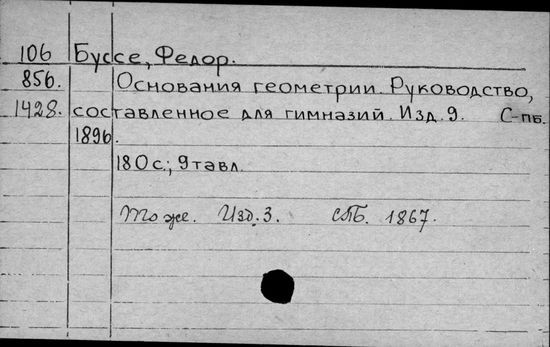 106 Буссе, Федор.
856. Основания геометрии. Руководство,
1428. составленное для гимназий. Изд. 9. С-пб.
1896.
180 с.; 9 табл.
То же. Изд. 3. СПБ. 1867.